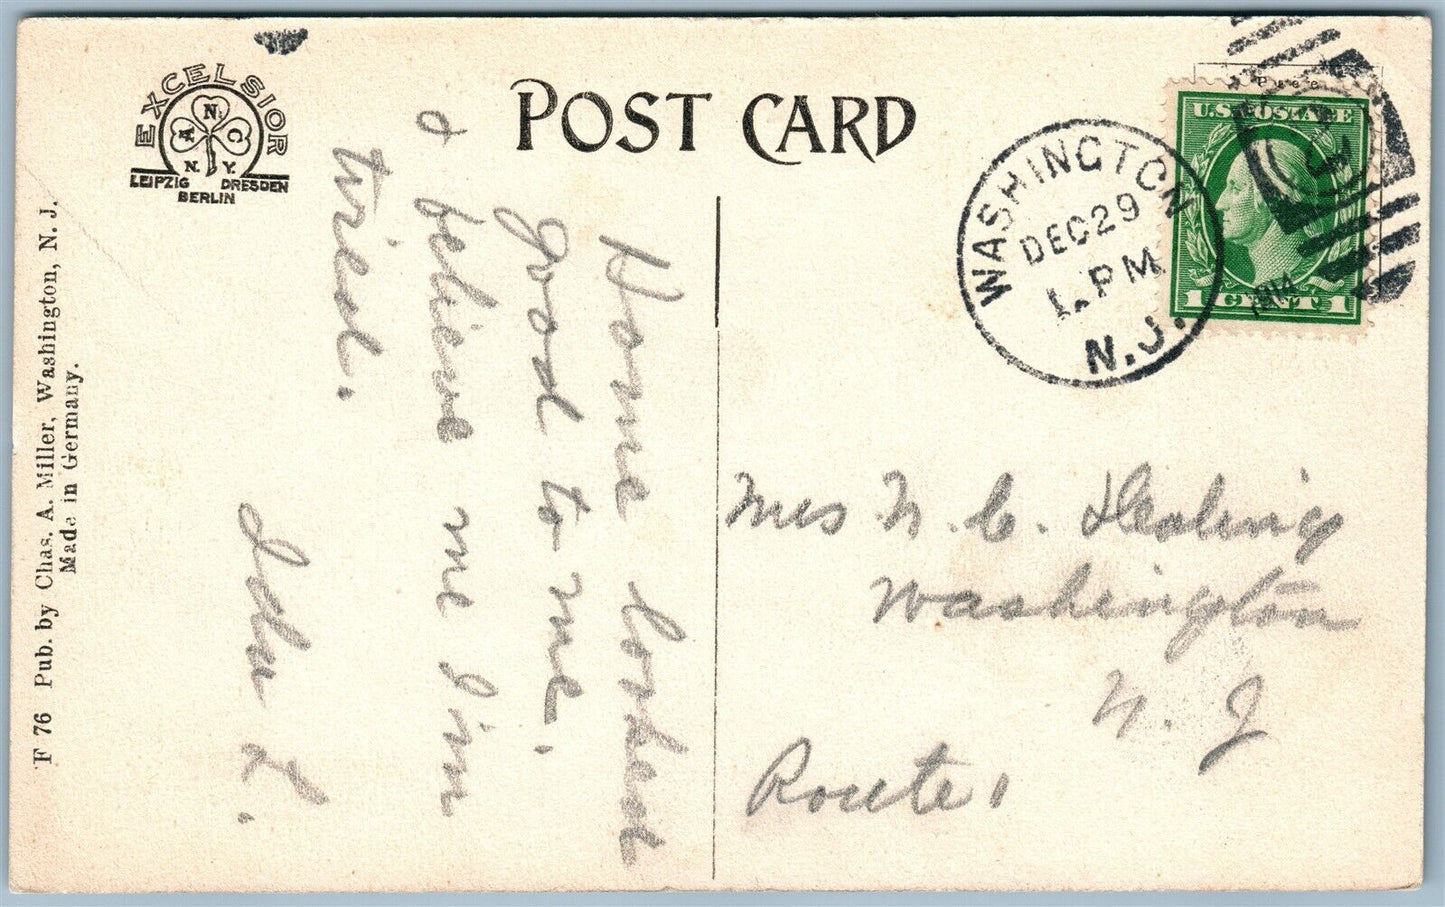 EXCELSIOR
A N C
N. Y.
LEIPZIG DRESDEN
BERLIN
POST CARD
WASHINGTON
DEC 29
1 PM
1914
N.J.
U.S. POSTAGE
1 CENT 1
F 76 Pub. by Chas. A. Miller, Washington, N. J.
Made in Germany.
Home looked
good to me.
& believe me I'm
tired.
Ida L.
Mrs N. C.
Washington
N. J
Route 1